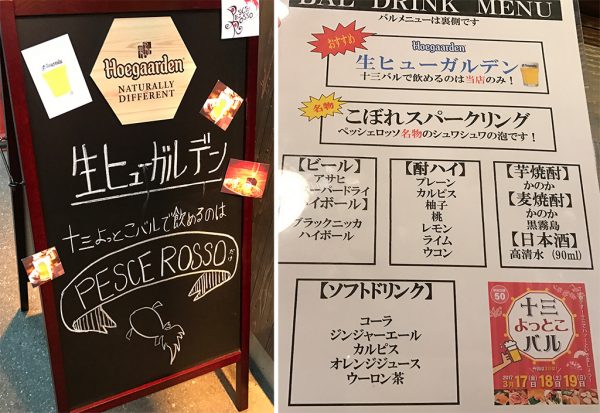 PESCE
ROSSO
Hoegaarden
NATURALLY
DIFFERENT
生ヒューガルデン
十三よっとこバルで飲めるのは
PESCE ROSSOだけ
BAL DRINK MENU
バルメニューは裏側です
おすすめ
Hoegaarden
生ヒューガルデン
十三バルで飲めるのは当店のみ!
名物
こぼれスパークリング
ペッシェロッソ名物のシュワシュワの泡です!
【ビール】
アサヒ
ーパードライ
イボール】
ブラックニッカ
ハイボール
【酎ハイ】
プレーン
カルピス
柚子
桃
レモン
ライム
ウコン
【芋焼酎】
かのか
【麦焼酎】
かのか
黒霧島
【日本酒】
高清水 (90ml)
【ソフトドリンク】
コーラ
ジンジャーエール
カルピス
オレンジジュース
ウーロン茶
50
十三
よっとこ
バル
2017
3月17(金)18(土)19(日)